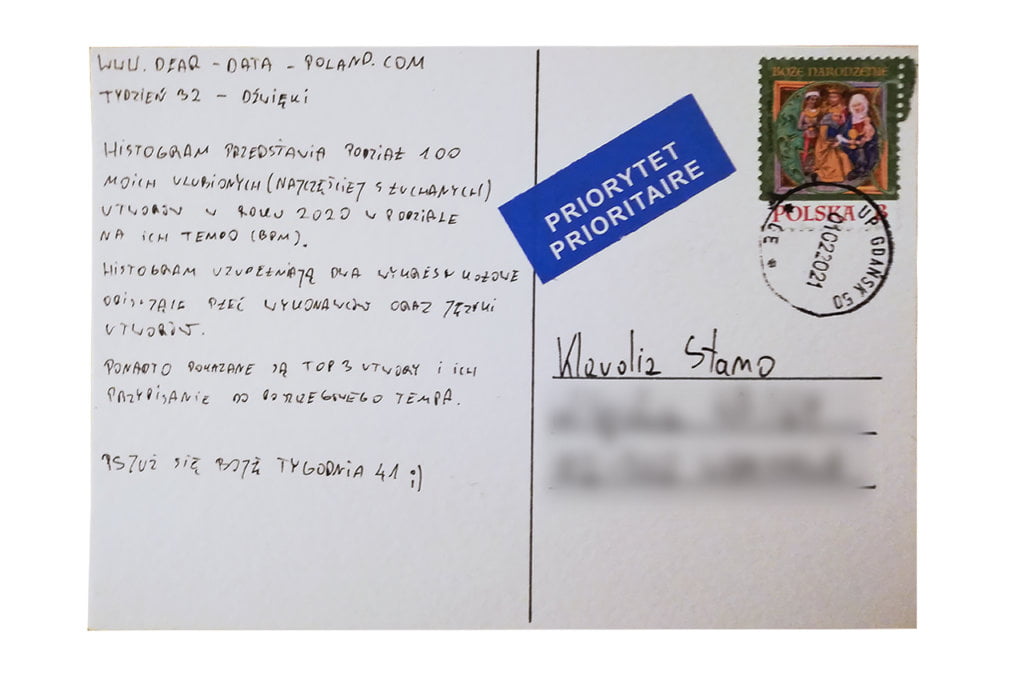 WWW.DEAR-DATA-POLAND.COM
TYDZIEŃ 32 - DŹWIĘKI
HISTOGRAM PRZEDSTAWIA PODZIAŁ 100
MOICH ULUBIONYCH (NAJCZĘŚCIEJ SŁUCHANYCH)
UTWORÓW W ROKU 2020 W PODZIALE
NA ICH TEMPO (BPM).
HISTOGRAM UZUPEŁNIAJĄ DWA WYKRESY KOŁOWE
PŁEĆ WYKONAWCÓW ORAZ JĘZYKI
UTWORÓW.
PONADTO POKAZANE SĄ TOP 3 UTWORY I ICH
PRZYPISANIE DO TEMPA.
PS JUŻ SIĘ BOJĘ TYGODNIA 41 ;)
PRIORYTET
PRIORITAIRE
BOŻE NARODZENIE
POLSKA B
UP GDAŃSK 50
01022021
Klaudia Stano